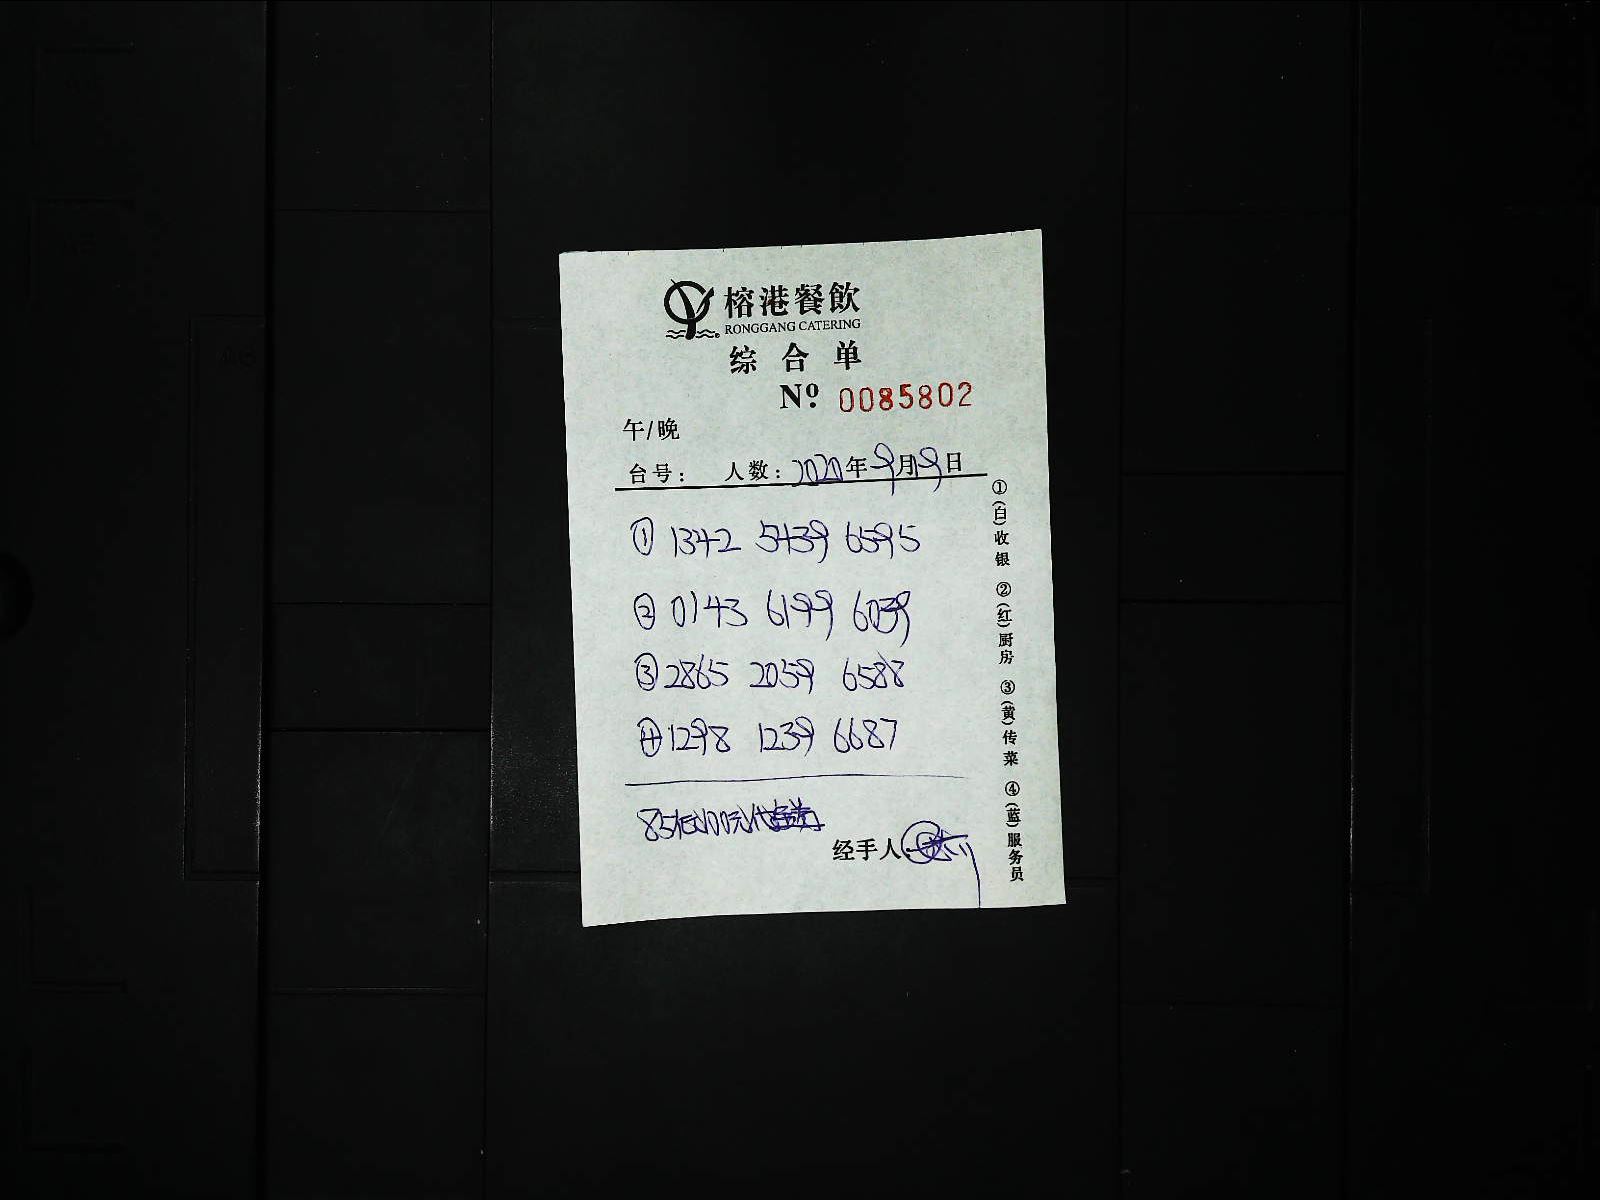 榕港餐飲
RONGGANG CATERING
综合单
Nº 0085802
午/晚
台号: 人数: 2020年9月9日
① 1342 5439 6595
② 0143 6199 6039
③ 2865 2059 6588
④ 1298 1239 6687
85抵100元代金券
经手人:
①(白)收银 ②(红)厨房 ③(黄)传菜 ④(蓝)服务员